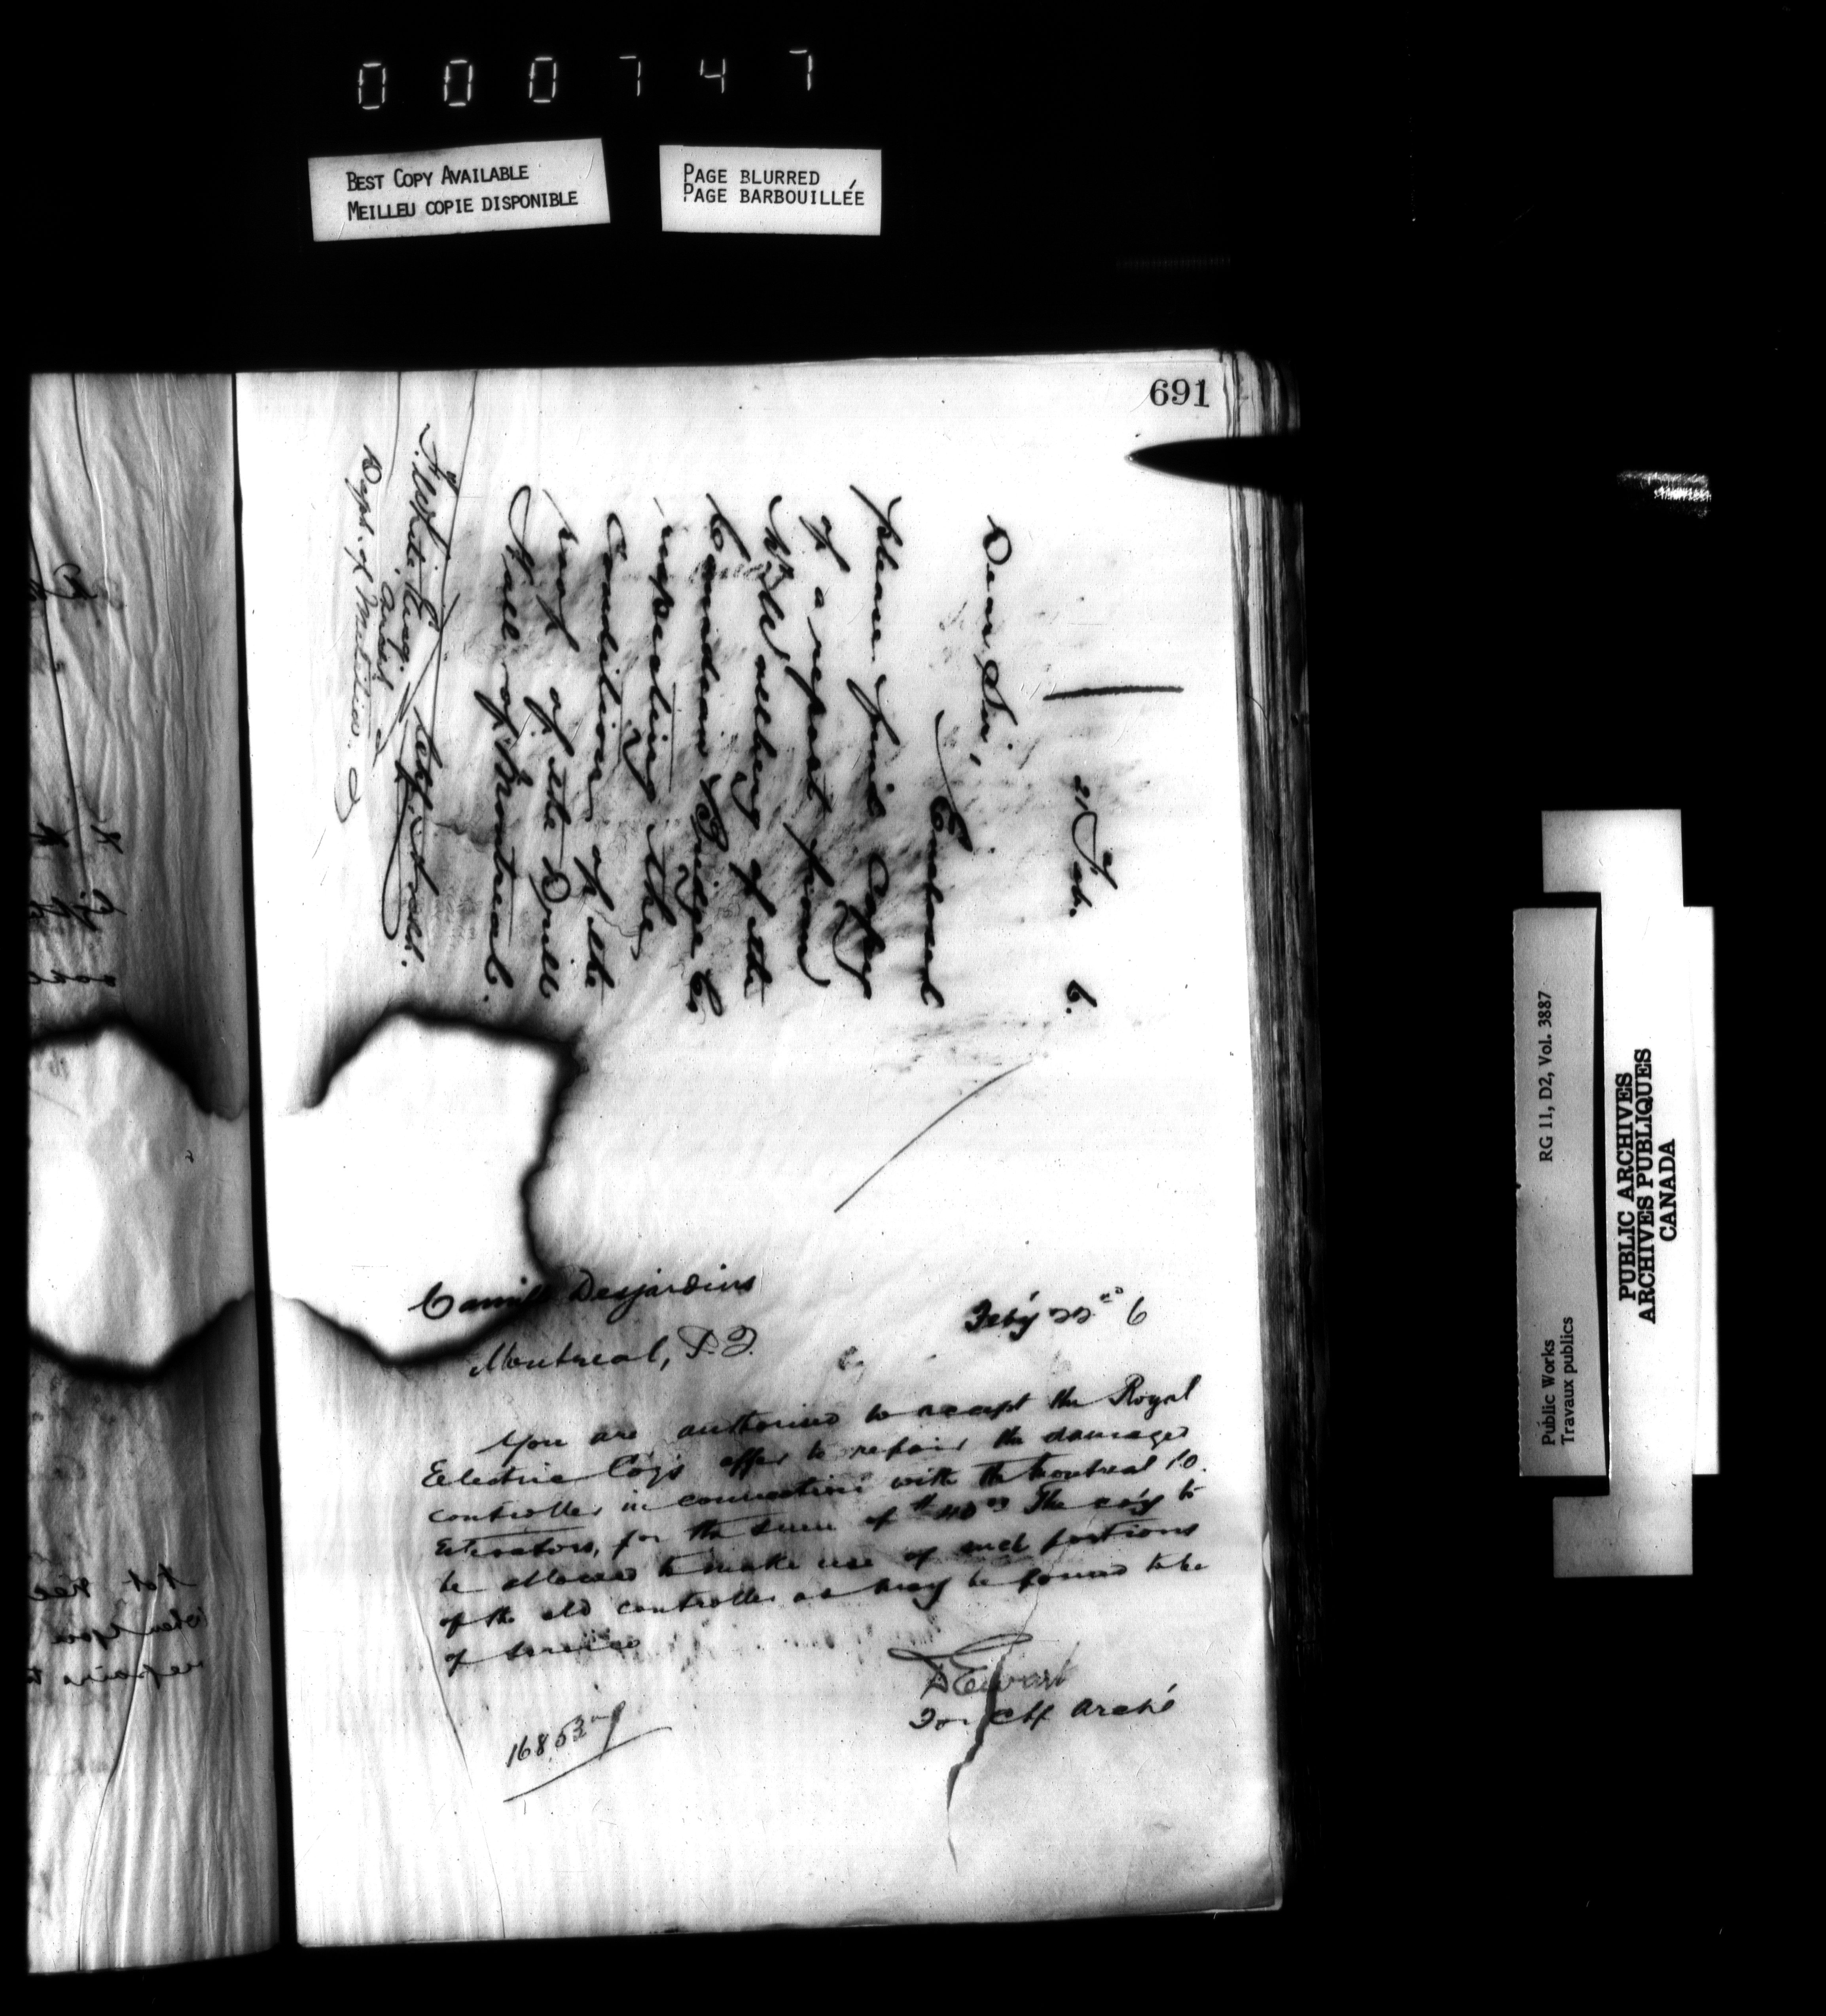 000747
BEST COPY AVAILABLE
MEILLEU COPIE DISPONIBLE
PAGE BLURRED
PAGE BARBOUILLÉE
691
21st Feb. 6.
Dear Sir,
Enclosed
please find Copy
of a report from
Mr of the
Canadian Bridge Co
respecting the
Condition of the
roof of the Drill
Hall of Montreal.
Chf. Archt.
F. White Esq.
Dept. of Militia.
Camille Desjardins
Feby 22nd 6
Montreal, P.Q.
You are authorised to accept the Royal
Electric Coy's offer to repair the damaged
controller in connection with the Montreal P.O.
Elevators, for the sum of The coy to
be allowed to make use of such portions
of the old controller as may be found to be
of service
D Ewart
For Chf Arché
Public Works
Travaux publics
RG 11, D2, Vol. 3887
PUBLIC ARCHIVES
ARCHIVES PUBLIQUES
CANADA